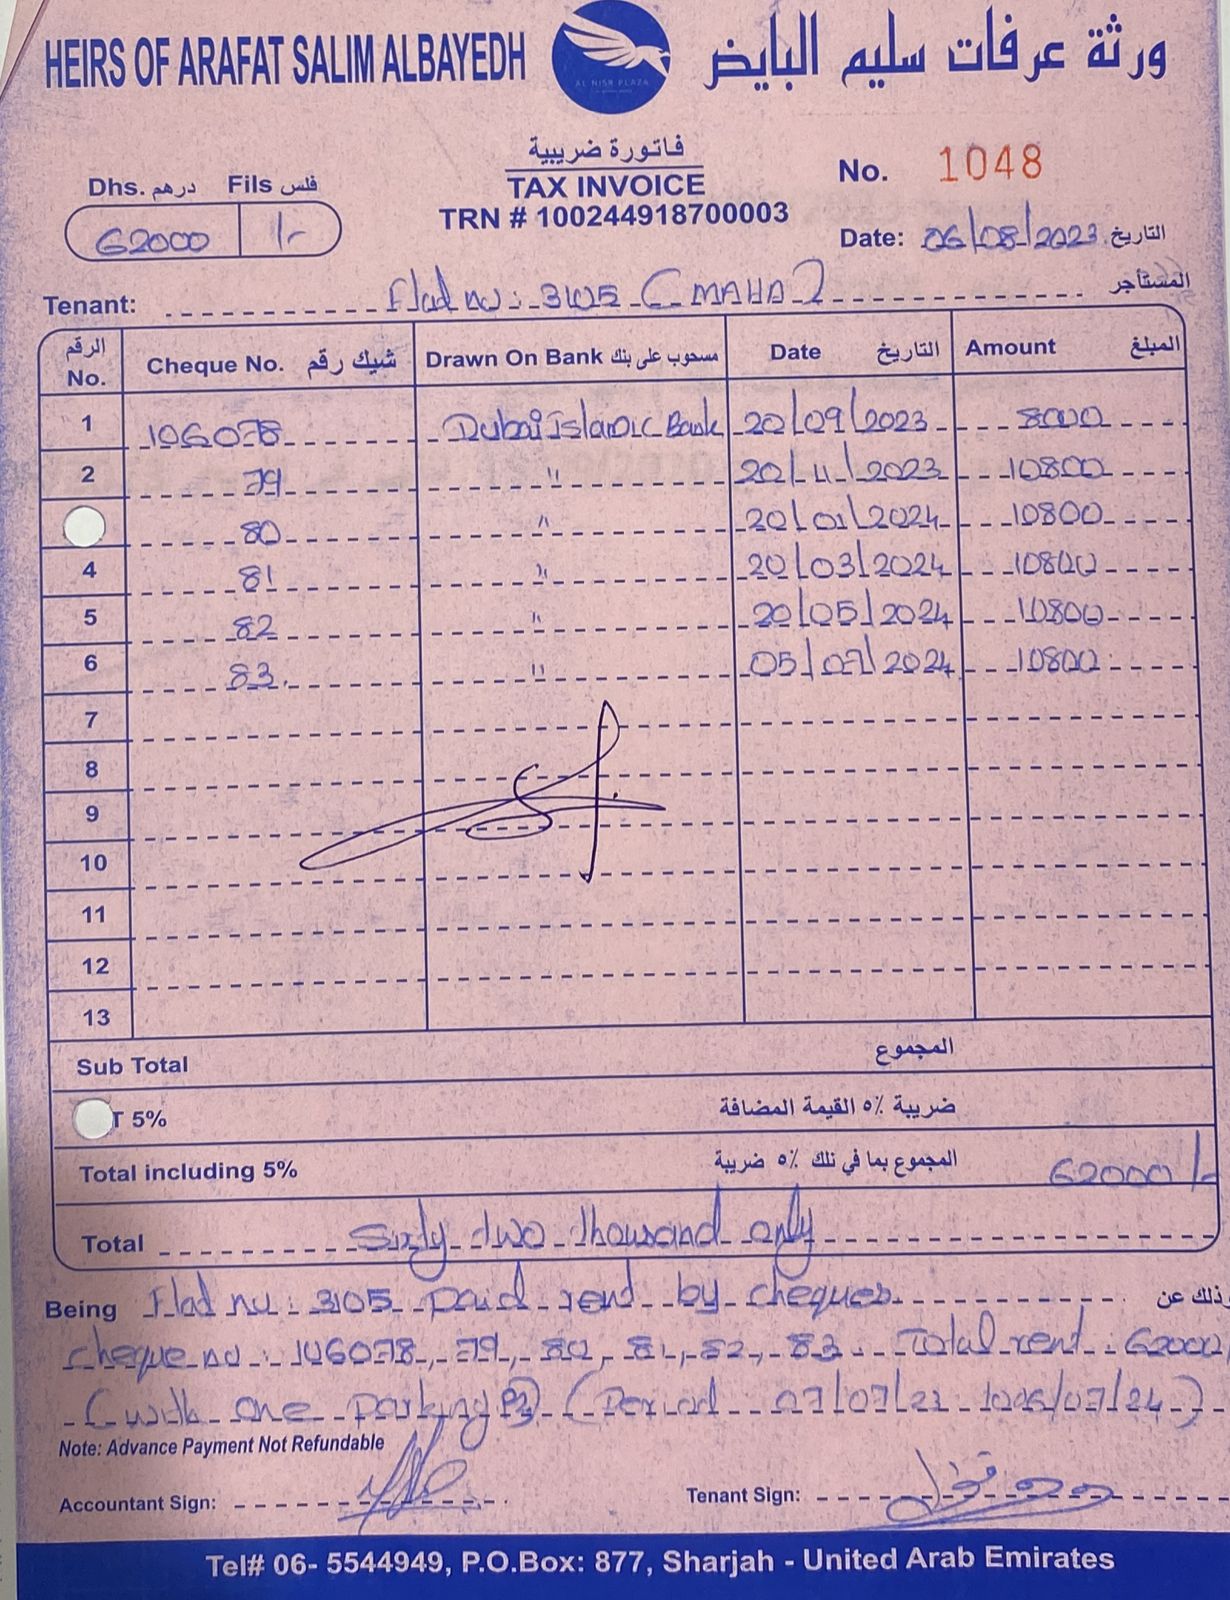 HEIRS OF ARAFAT SALIM ALBAYEDH
AL NISR PLAZA
ورثة عرفات سليم البايض
فاتورة ضريبية
TAX INVOICE
TRN # 100244918700003
No. 1048
Dhs. درهم Fils فلس
62000 /-
Date: 06/08/2023 التاريخ
Tenant: Flat no: 3105 (MAHA) المستأجر
الرقم No. Cheque No. شيك رقم Drawn On Bank مسحوب على بنك Date التاريخ Amount المبلغ
1 106078 Dubai Islamic Bank 20/09/2023 8000
2 79 " 20/11/2023 10800
80 " 20/01/2024 10800
4 81 " 20/03/2024 10800
5 82 " 20/05/2024 10800
6 83. " 05/07/2024 10800
7
8
9
10
11
12
13
Sub Total المجموع
T 5% ضريبة ٥٪ القيمة المضافة
Total including 5% المجموع بما في تلك ٥٪ ضريبة 62000/-
Total Sixty two thousand only
Being Flat no: 3105 paid rent by cheques ذلك عن
cheque no: 106078, 79, 80, 81, 82, 83 Total rent: 62000
(with one parking P2) (Period 07/07/23 to 06/07/24)
Note: Advance Payment Not Refundable
Accountant Sign: Tenant Sign:
Tel# 06- 5544949, P.O.Box: 877, Sharjah - United Arab Emirates